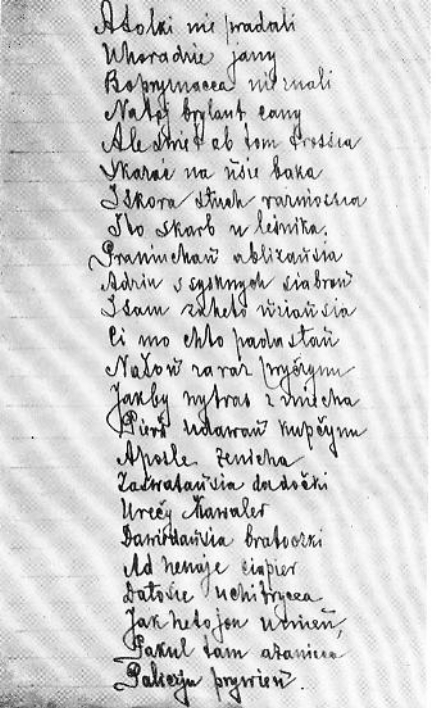 Atolki nie pradali
U horadnie jany
Bo prymacca nie znali
Na toj brylant cany
Ale świet ab tom trossia
Skarać na ŭsie baka
I skora słuch razniossia
Što skarb u leśnika.
Praniuchaŭ ablizaŭsia
Adzin s sysknych siabroŭ
I sam za heto ŭziaŭsia
Ci mo chto padastaŭ
Našoŭ zaraz pryčynu
Jakby vytras z miecha
Pierš udawaŭ kupčynu
A posle żenicha
Zaswataŭsia da dočki
Urečy Kawaler
Dawiedaŭsia bratoczki
Ad henaje ciapier
Dałoŭsie uchitrycca
Jak heto jon umieŭ,
Pakul tam ażanicca
Palicyju prywieŭ.